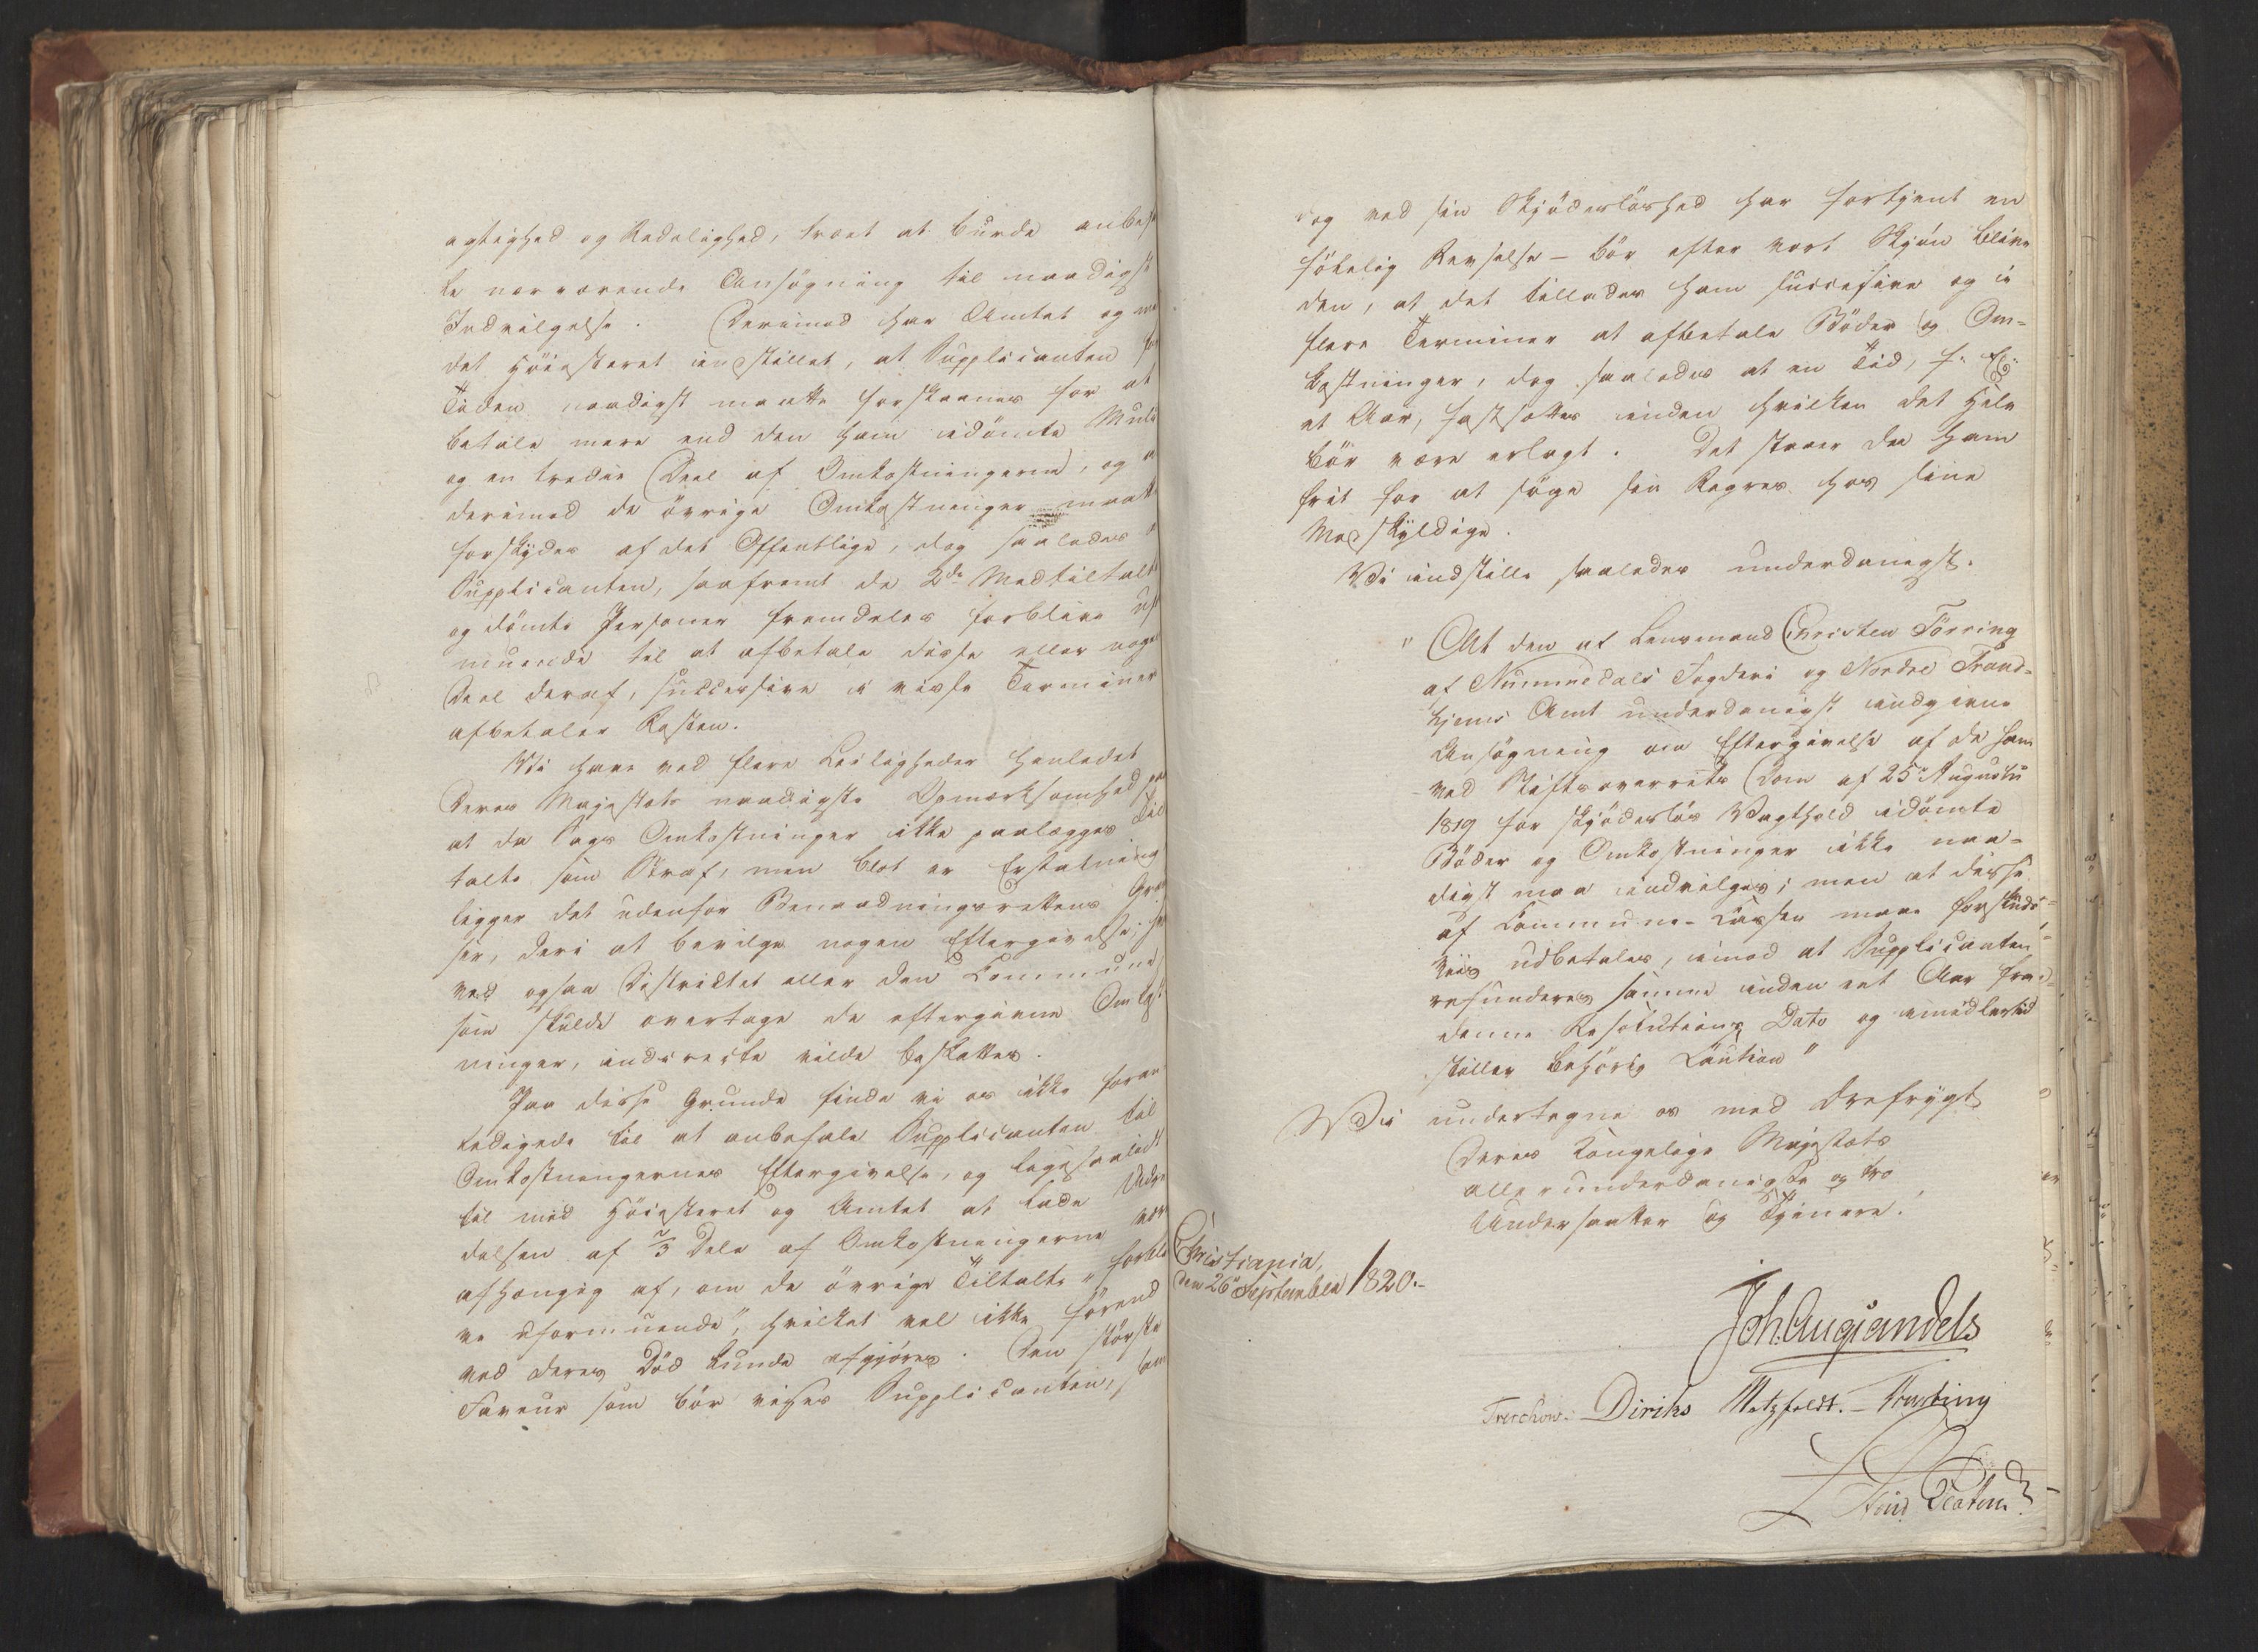 agtighed og Redelighed, troet at burde anbefa
le nærværende Ansøgning til naadigst
Indvilgelse. Derimod har Amtet og
det Höiesteret indstillet, at Supplicanten for
Tiden naadigst maatte forskaanes for at
betale mere end den ham idömte Mulct
og en tredie Deel af Omkostningerne, og a
derimod de övrige Omkostninger maatte
forskydes af det Offentlige, dog saaledes
Supplicanten, saafremt de 2de Medtiltalte
og dömte Personer fremdeles forblive ufor
muende til at afbetale disse eller nogen
Deel deraf, successive i visse Terminer
afbetaler Resten.
Vi have ved flere Leiligheder henledet
Deres Majestæts naadigste Opmærksomhed paa
at da Sags Omkostninger ikke paalægges Til
talte som Straf, men blot er Erstatning
ligger det udenfor Benaadningsrettens Græn
ser, deri at bevilge nogen Eftergivelse, hvor
ved ogsaa Districtet eller den Commune,
som skulde overtage de eftergivne Omkost
ninger, indirecte vilde beskattes.
Paa disse Grunde finde vi os ikke foran
ledigede til at anbefale Supplicanten til
Omkostningernes Eftergivelse, og ligesaalidt
til med Höiesteret og Amtet at lade Udre
delsen af 2/3 Dele af Omkostningerne være
afhængig af, om de övrige Tiltalte "forbli
ve uformuende", hvilket vel ikke förend
ved deres Död kunde afgjöres. Den störste
Faveur som bör vises Supplicanten, som
dog ved sin Skjödeslöshed har fortjent en
fölelig Revselse – bör efter vort Skjön blive
den, at det tillades ham successive og i
flere Terminer at afbetale Böder og Om-
kostninger, dog saaledes at en Tid, f. Ex.
et Aar, fastsættes inden hvilken det Hele
bör være erlagt. Det staaer da ham
frit for at söge sin Regres hos sine
Medskyldige.
Vi indstille saaledes underdanigst:
"At den af Lensmand Christen Törring
af Nummedals Fogderi og Nordre Trond-
hjems Amt underdanigst indgivne
Ansögning om Eftergivelse af de ham
ved Stiftsoverrets Dom af 25de Augusti
1819 for skjödeslös Vagthold idömte
Böder og Omkostninger ikke naa-
digst maa indvilges; men at disse
af Commune-Cassen maae forskuds-
viis udbetales, imod at Supplicanten
refunderer samme inden eet Aar fra
denne Resolutions Dato og imidlertid
stiller behörig Caution"
Vi undertegne os med Ærefrygt
Deres Kongelige Majestæts
allerunderdanigste og tro
Undersaatter og Tjenere.
Christiania,
den 26de September 1820.-
Joh. Aug. Sandels
Treschow. Diriks Motzfeldt. – Krafting